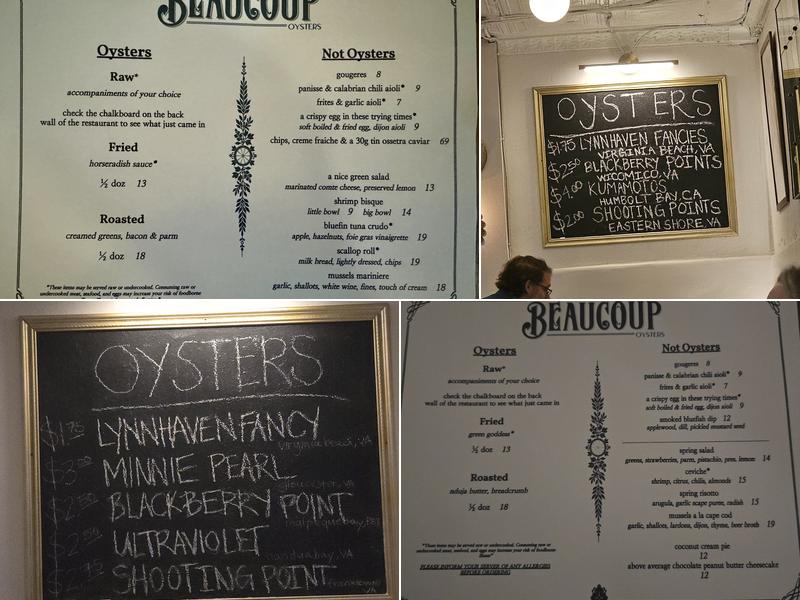 BEAUCOUP
OYSTERS
Oysters
Raw*
accompaniments of your choice
check the chalkboard on the back
wall of the restaurant to see what just came in
Fried
horseradish sauce*
½ doz 13
Roasted
creamed greens, bacon & parm
½ doz 18
*These items may be served raw or undercooked. Consuming raw or
undercooked meat, seafood, and eggs may increase your risk of foodborne
Not Oysters
gougeres 8
panisse & calabrian chili aioli* 9
frites & garlic aioli* 7
a crispy egg in these trying times*
soft boiled & fried egg, dijon aioli 9
chips, creme fraiche & a 30g tin ossetra caviar 69
a nice green salad
marinated comte cheese, preserved lemon 13
shrimp bisque
little bowl 9 big bowl 14
bluefin tuna crudo*
apple, hazelnuts, foie gras vinaigrette 19
scallop roll*
milk bread, lightly dressed, chips 19
mussels mariniere
garlic, shallots, white wine, fines, touch of cream 18
OYSTERS
$1.75 LYNNHAVEN FANCIES
VIRGINIA BEACH, VA
$2.50 BLACKBERRY POINTS
WICOMICO, VA
$4.00 KUMAMOTOS
HUMBOLT BAY, CA
$2.00 SHOOTING POINTS
EASTERN SHORE, VA
OYSTERS
$1.75 LYNNHAVEN FANCY
virginia beach, VA
$3.00 MINNIE PEARL
gloucester, VA
$2.50 BLACKBERRY POINT
malpeque bay, PEI
$2.50 ULTRAVIOLET
mandua bay, VA
SHOOTING POINT
VA
BEAUCOUP
OYSTERS
Oysters
Raw*
accompaniments of your choice
check the chalkboard on the back
wall of the restaurant to see what just came in
Fried
green goddess*
½ doz 13
Roasted
nduja butter, breadcrumb
½ doz 18
*These items may be served raw or undercooked. Consuming raw or
undercooked meat, seafood, and eggs may increase your risk of foodborne
illness*
PLEASE INFORM YOUR SERVER OF ANY ALLERGIES
BEFORE ORDERING
Not Oysters
gougeres 8
panisse & calabrian chili aioli* 9
frites & garlic aioli* 7
a crispy egg in these trying times*
soft boiled & fried egg, dijon aioli 9
smoked bluefish dip 12
applewood, dill, pickled mustard seed
spring salad
greens, strawberries, parm, pistachio, pres. lemon 14
ceviche*
shrimp, citrus, chilis, almonds 15
spring risotto
arugula, garlic scape puree, radish 15
mussels a la cape cod
garlic, shallots, lardons, dijon, thyme, beer broth 19
coconut cream pie
12
above average chocolate peanut butter cheesecake
12